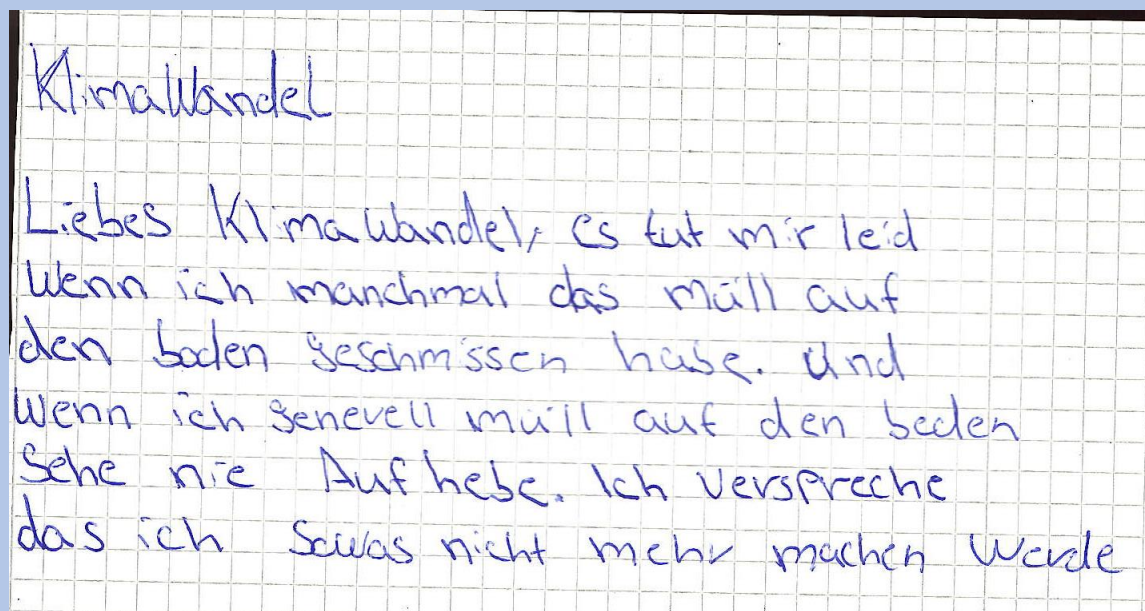 KlimaWandel
Liebes KlimaWandel, es tut mir leid
Wenn ich manchmal das müll auf
den boden geschmissen habe. Und
Wenn ich generell müll auf den boden
sehe nie Aufhebe. Ich verspreche
das ich sowas nicht mehr machen werde